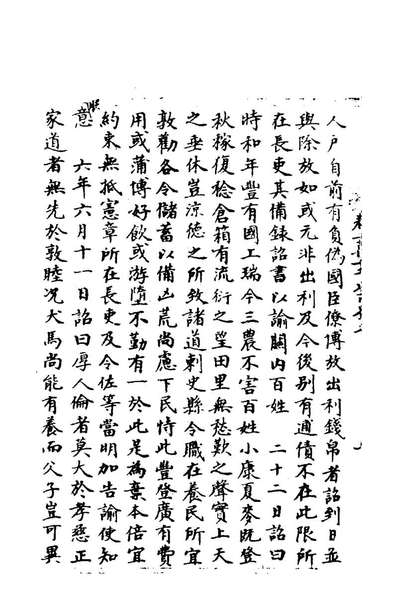 人戶自前有負偽國臣僚博放出利錢帛者詔到日並
與除放如或元非出利及令後別有逋債不在此限所
在長吏其備錄詔書以諭闗内百姓　二十二日詔曰
時和年豐有國上瑞今三農不害百姓小康夏麥既登
秋稼復稔倉箱有流衍之望田里無愁歎之聲實上天
之垂休豈涼德之所致諸道刺史縣令職在養民所宜
敦勸各令儲蓄以備凶荒尚慮下民恃此豐登廣有費
用或蒲博好飲或游墮不勤有一於此是為棄本倍宜
約束無抵憲章所在長吏及令佐等當明加告諭使知
朕意　六年六月十一日詔曰厚人倫者莫大於孝慈正
家道者無先於敦睦况犬馬尚能有養而父子豈可異